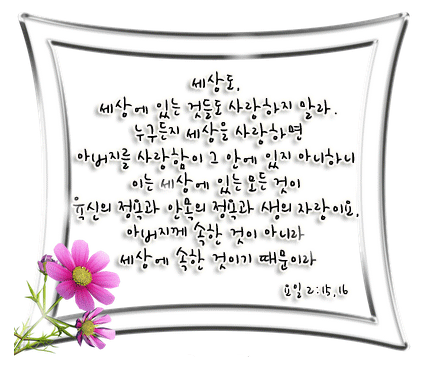 세상도,
세상에 있는 것들도 사랑하지 말라.
누구든지 세상을 사랑하면
아버지를 사랑함이 그 안에 있지 아니하니
이는 세상에 있는 모든 것이
육신의 정욕과 안목의 정욕과 생의 자랑이요,
아버지께 속한 것이 아니라
세상에 속한 것이기 때문이라
요일 2:15,16